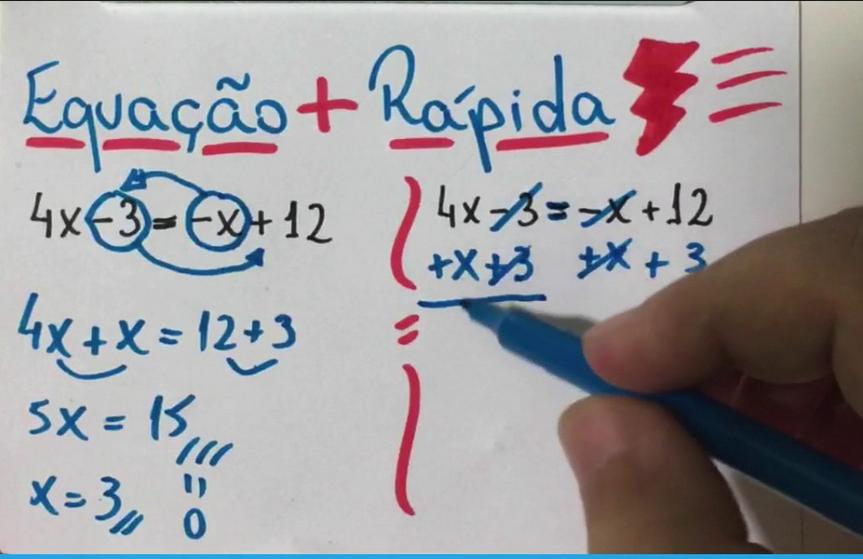 Equação + Rápida
4x - 3 = -x + 12
4x + x = 12 + 3
5x = 15
x = 3
4x - 3 = -x + 12
+x +3 +x + 3
=